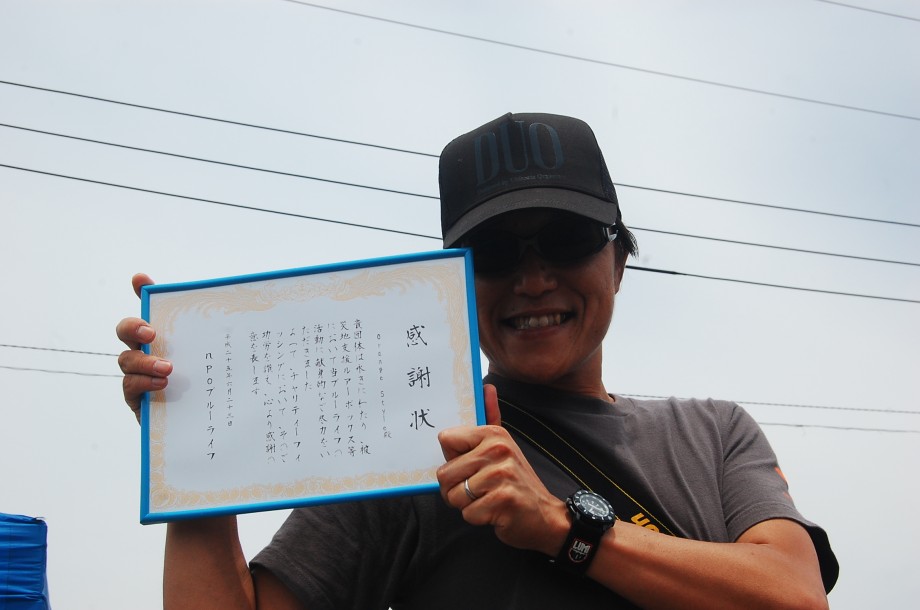 DUO
感謝状
Orange Style殿
貴団体は永きにわたり、被
災地支援ルアーボックス等
において当ブルーライフの
活動に献身的なご尽力をい
ただきました
よって、チャリティーフィ
ッシングにおいて、その
功労を讃え、心より感謝の
意を表します
平成二十五年六月二十三日
NPOブルーライフ